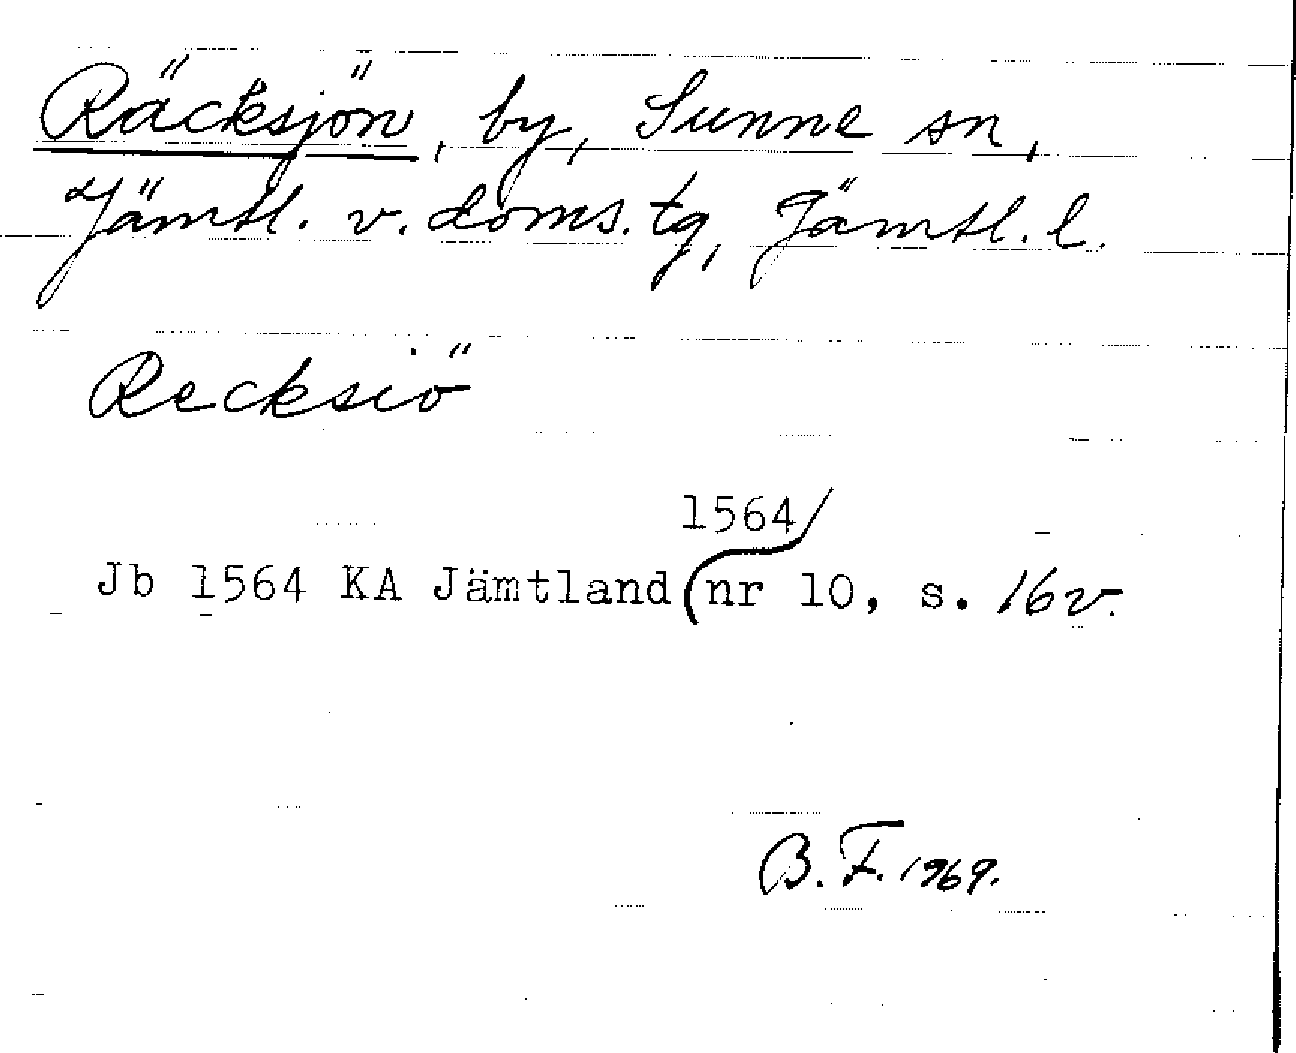 Räcksjön, by, Sunne sn,
Jämtl. v. doms. tg, Jämtl. l.
Recksiö
1564/
Jb 1564 KA Jämtland (nr 10, s. 16v.
B. F. 1969.